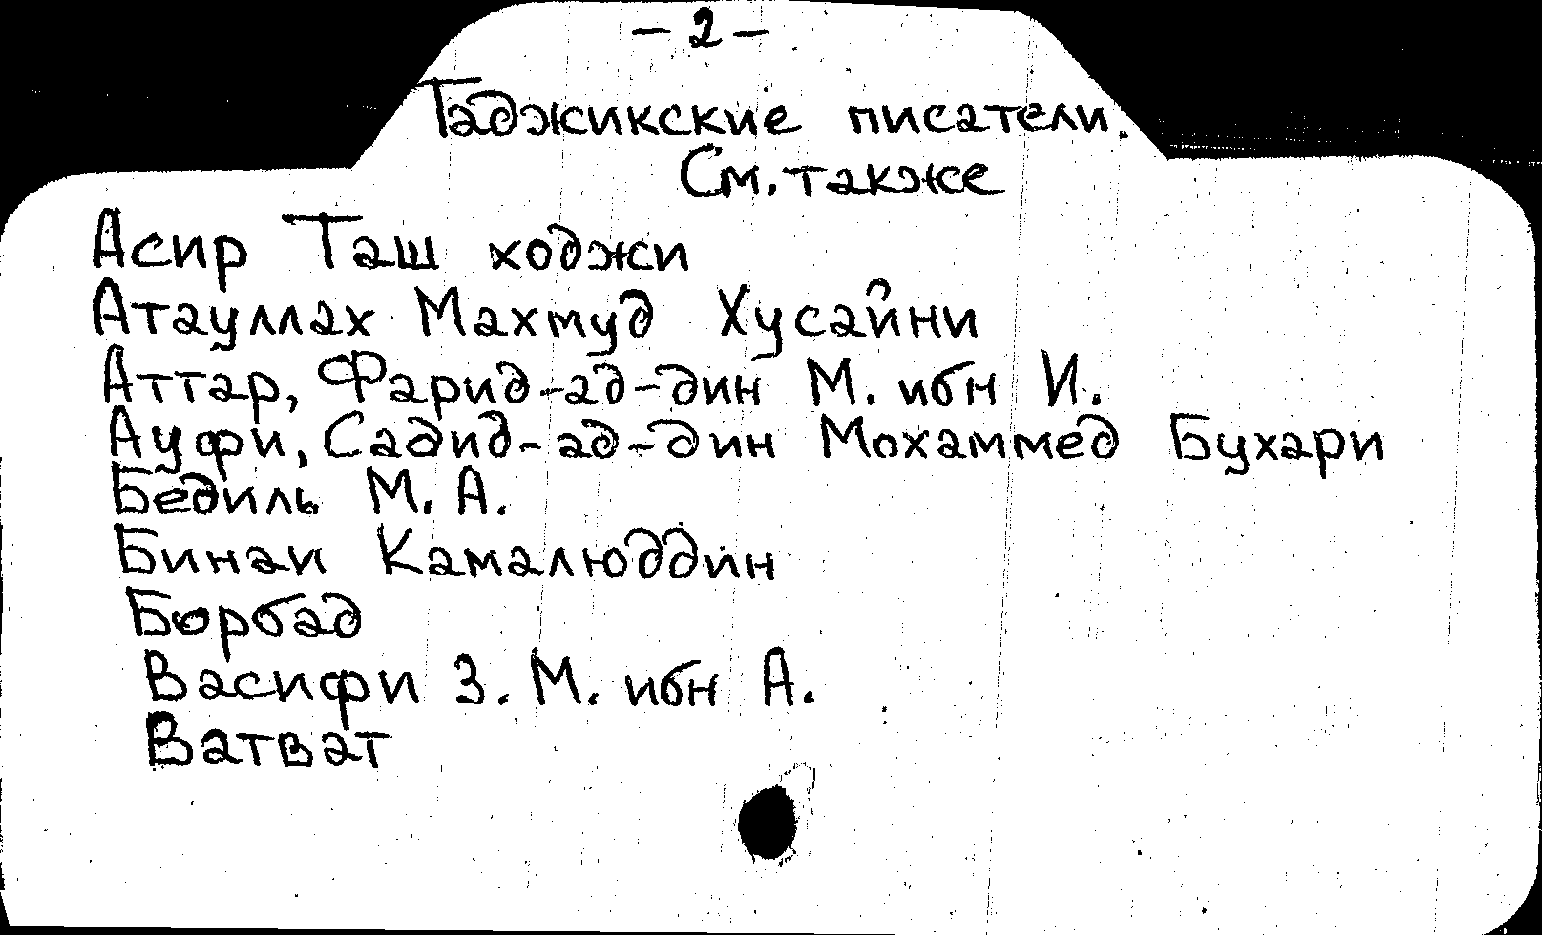 - 2 -
Таджикские писатели.
См. также
Асир Таш ходжи
Атауллах Махмуд Хусайни
Аттар, Фарид-ад-дин М. ибн И.
Ауфи, Садид-ад-дин Мохаммед Бухари
Бедиль М. А.
Бинаи Камалюддин
Борбад
Васифи З. М. ибн А.
Ватват